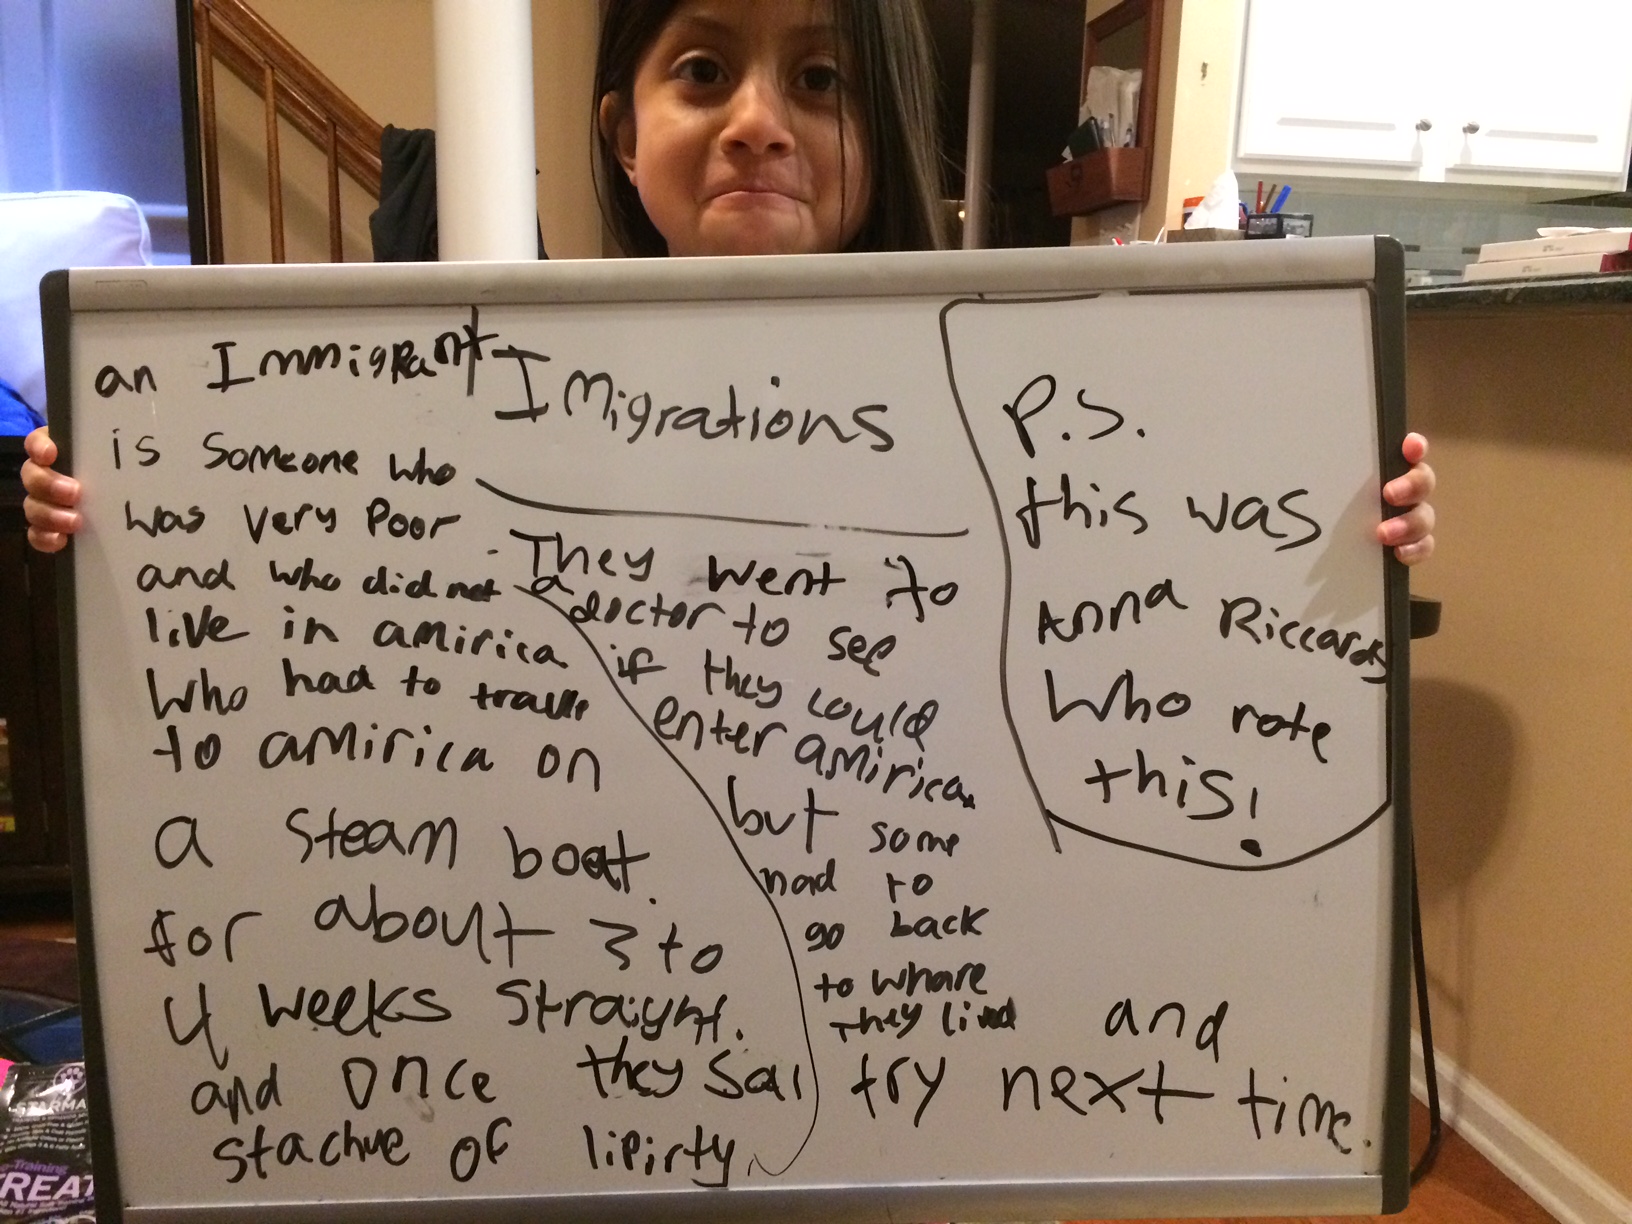 an Immigrant
is Someone who
was very Poor
and who did not
live in amirica
Who had to travle
to amirica on
a steam boat.
for about 3 to
4 weeks straight.
and once they Saw
stachue of lipirty
IMigrations
They went to
a doctor to see
if they could
enter amirica
but some
had to
go back
to whare
They lived and
try next time.
P.S.
this was
Anna Riccards
Who rote
this!
STARMA
e-Training
REAT